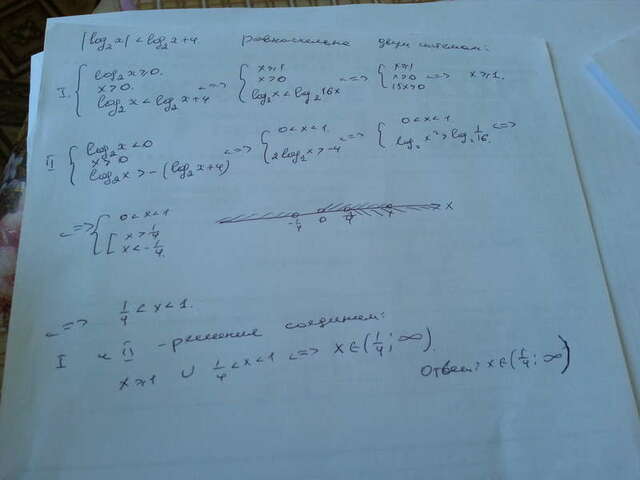 |log₂x| < log₂x+4 равносильна двум системам:
I. { log₂x≥0 x>0 log₂x < log₂x+4 <=> { x≥1 x>0 log₂x < log₂16x <=> { x≥1 x>0 15x>0 <=> x≥1.
II { log₂x<0 x>0 log₂x > -(log₂x+4) <=> { 0<x<1 2log₂x>-4 <=> { 0<x<1 log₂x²>log₂ 1/16 <=>
<=> { 0<x<1 [ x>1/4 x<-1/4
-1/4 0 1/4 x
<=> 1/4<x<1.
I и II - решение соединим:
x≥1 ∪ 1/4<x<1 <=> x∈(1/4; ∞).
Ответ: x∈(1/4; ∞)